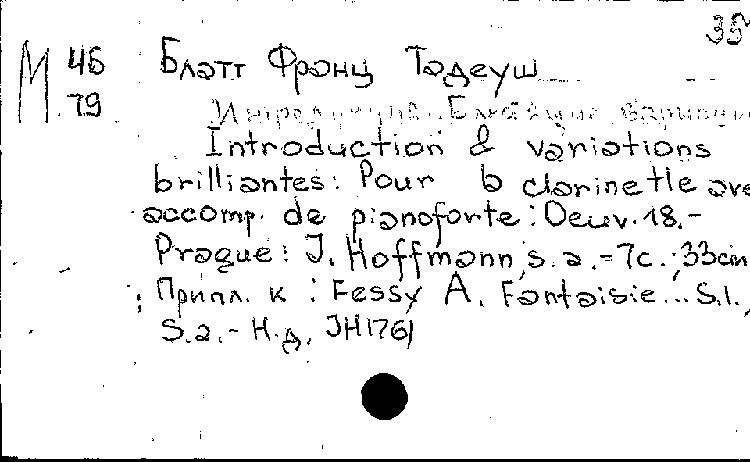 35
М 45 Блатт Франц Тадеуш
79
Интродукция. Блестящие вариации
Introduction & variations
brilliantes: Pour b clarinette ave
accomp. de pianoforte: Oeuv. 18.-
Prague: J. Hoffmann, s. a. - 7c.; 33cm
Припл. к: Fessy A. Fantaisie... S.l.,
S.a. - Н.д. JH1761